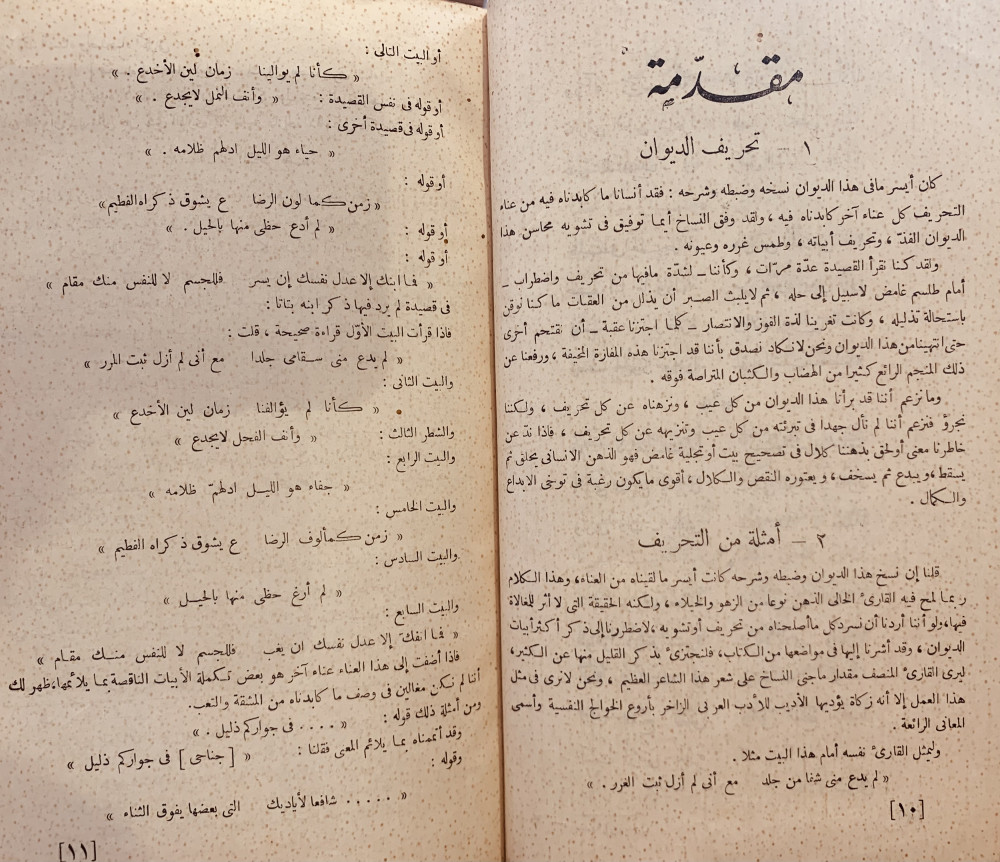 مقدّمة
١ – تحريف الديوان
كان أيسر ما فى هذا الديوان نسخه وضبطه وشرحه : فقد أنسانا ما كابدناه فيه من عناء
التحريف كل عناء آخر كابدناه فيه ، ولقد وفق النساخ أيما توفيق فى تشويه محاسن هذا
الديوان الفذّ ، وتحريف أبياته ، وطمس غرره وعيونه .
ولقد كنا نقرأ القصيدة عدّة مرّات ، وكأننا – لشدّة مافيها من تحريف واضطراب –
أمام طلسم غامض لاسبيل إلى حله ، ثم لايلبث الصبر أن يذلل من العقبات ما كنا نوقن
باستحالة تذليله ، وكانت تغرينا لذة الفوز والانتصار – كلما اجتزنا عقبة – أن نقتحم أخرى
حتى انتهينا من هذا الديوان ونحن لانكاد نصدق بأننا قد اجتزنا هذه المفازة المخيفة ، ورفعنا عن
ذلك المنجم الرائع كثيرا من الهضاب والكثبان المتراصة فوقه .
وما نزعم أننا قد برأنا هذا الديوان من كل عيب ، ونزهناه عن كل تحريف ، ولكننا
نجرؤ فنزعم أننا لم نأل جهدا فى تبرئته من كل عيب وتنزيهه عن كل تحريف ، فاذا ندّ عن
خاطرنا معنى أو لحق بذهننا كلال فى تصحيح بيت أو تجلية غامض فهو الذهن الانسانى يحلق ثم
يسقط ، ويبدع ثم يسخف ، ويعتوره النقص والكلال ، أقوى ما يكون رغبة فى توخى الابداع
والكمال .
٢ – أمثلة من التحريف
قلنا إن نسخ هذا الديوان وضبطه وشرحه كانت أيسر ما لقيناه من العناء، وهذا الكلام
ربما لمح فيه القارئ الخالى الذهن نوعا من الزهو والخيلاء ، ولكنه الحقيقة التى لا أثر للمغالاة
فيها، ولو أننا أردنا أن نسرد كل ما أصلحناه من تحريف أو تشويه ، لاضطررنا إلى ذكر أكثر أبيات
الديوان ، وقد أشرنا إليها فى مواضعها من الكتاب، فلنجتزئ بذكر القليل منها عن الكثير،
ليرى القارئ المنصف مقدار ماجنى النساخ على شعر هذا الشاعر العظيم ، ونحن لانرى فى مثل
هذا العمل إلا أنه زكاة يؤديها الأديب للأدب العربى الزاخر بأروع الخوالج النفسية وأسمى
المعانى الرائعة .
وليمثل القارئ نفسه أمام هذا البيت مثلا .
« لم يدع منى شفا من جلد مع أنى لم أزل ثبت الغرر . »
[١٠]
أو البيت التالى :
« كأنا لم يوالينا زمان لين الأخدع . »
أو قوله فى نفس القصيدة : « وأنف النمل لايجدع . »
أو قوله فى قصيدة أخرى :
« حياء هو الليل ادلهم ظلامه . »
أو قوله :
« زمن كما لون الرضا ع يشوق ذكراه الفطيم »
أو قوله : « لم أدع حظى منها بالحيل . »
أو قوله :
« فما ابنك إلا عدل نفسك إن يسر فللجسم لا للنفس منك مقام »
فى قصيدة لم يرد فيها ذكر ابنه بتاتا :
فاذا قرأت البيت الأوّل قراءة صحيحة ، قلت :
« لم يدع منى سقامى جلدا مع أنى لم أزل ثبت المرر »
والبيت الثانى :
« كأنا لم يؤالفنا زمان لين الأخدع »
والشطر الثالث : « وأنف الفحل لايجدع »
والبيت الرابع :
« جفاء هو الليل ادلهمّ ظلامه »
والبيت الخامس :
« زمن كمألوف الرضا ع يشوق ذكراه الفطيم »
والبيت السادس :
« لم أرغ حظى منها بالحيل »
والبيت السابع :
« فما انفكّ إلا عدل نفسك ان يغب فللجسم لا للنفس منك مقام »
فاذا أضفت إلى هذا العناء عناء آخر هو بعض تكملة الأبيات الناقصة بما يلائمها، ظهر لك
أننا لم نكن مغالين فى وصف ما كابدناه من المشقة والتعب.
ومن أمثلة ذلك قوله : « . . . . فى جواركم ذليل . »
وقد أتممناه بما يلائم المعنى فقلنا : « [جناحى] فى جواركم ذليل »
وقوله :
« . . . . . شافعا لأياديك التى بعضها يفوق الثناء »
[١١]